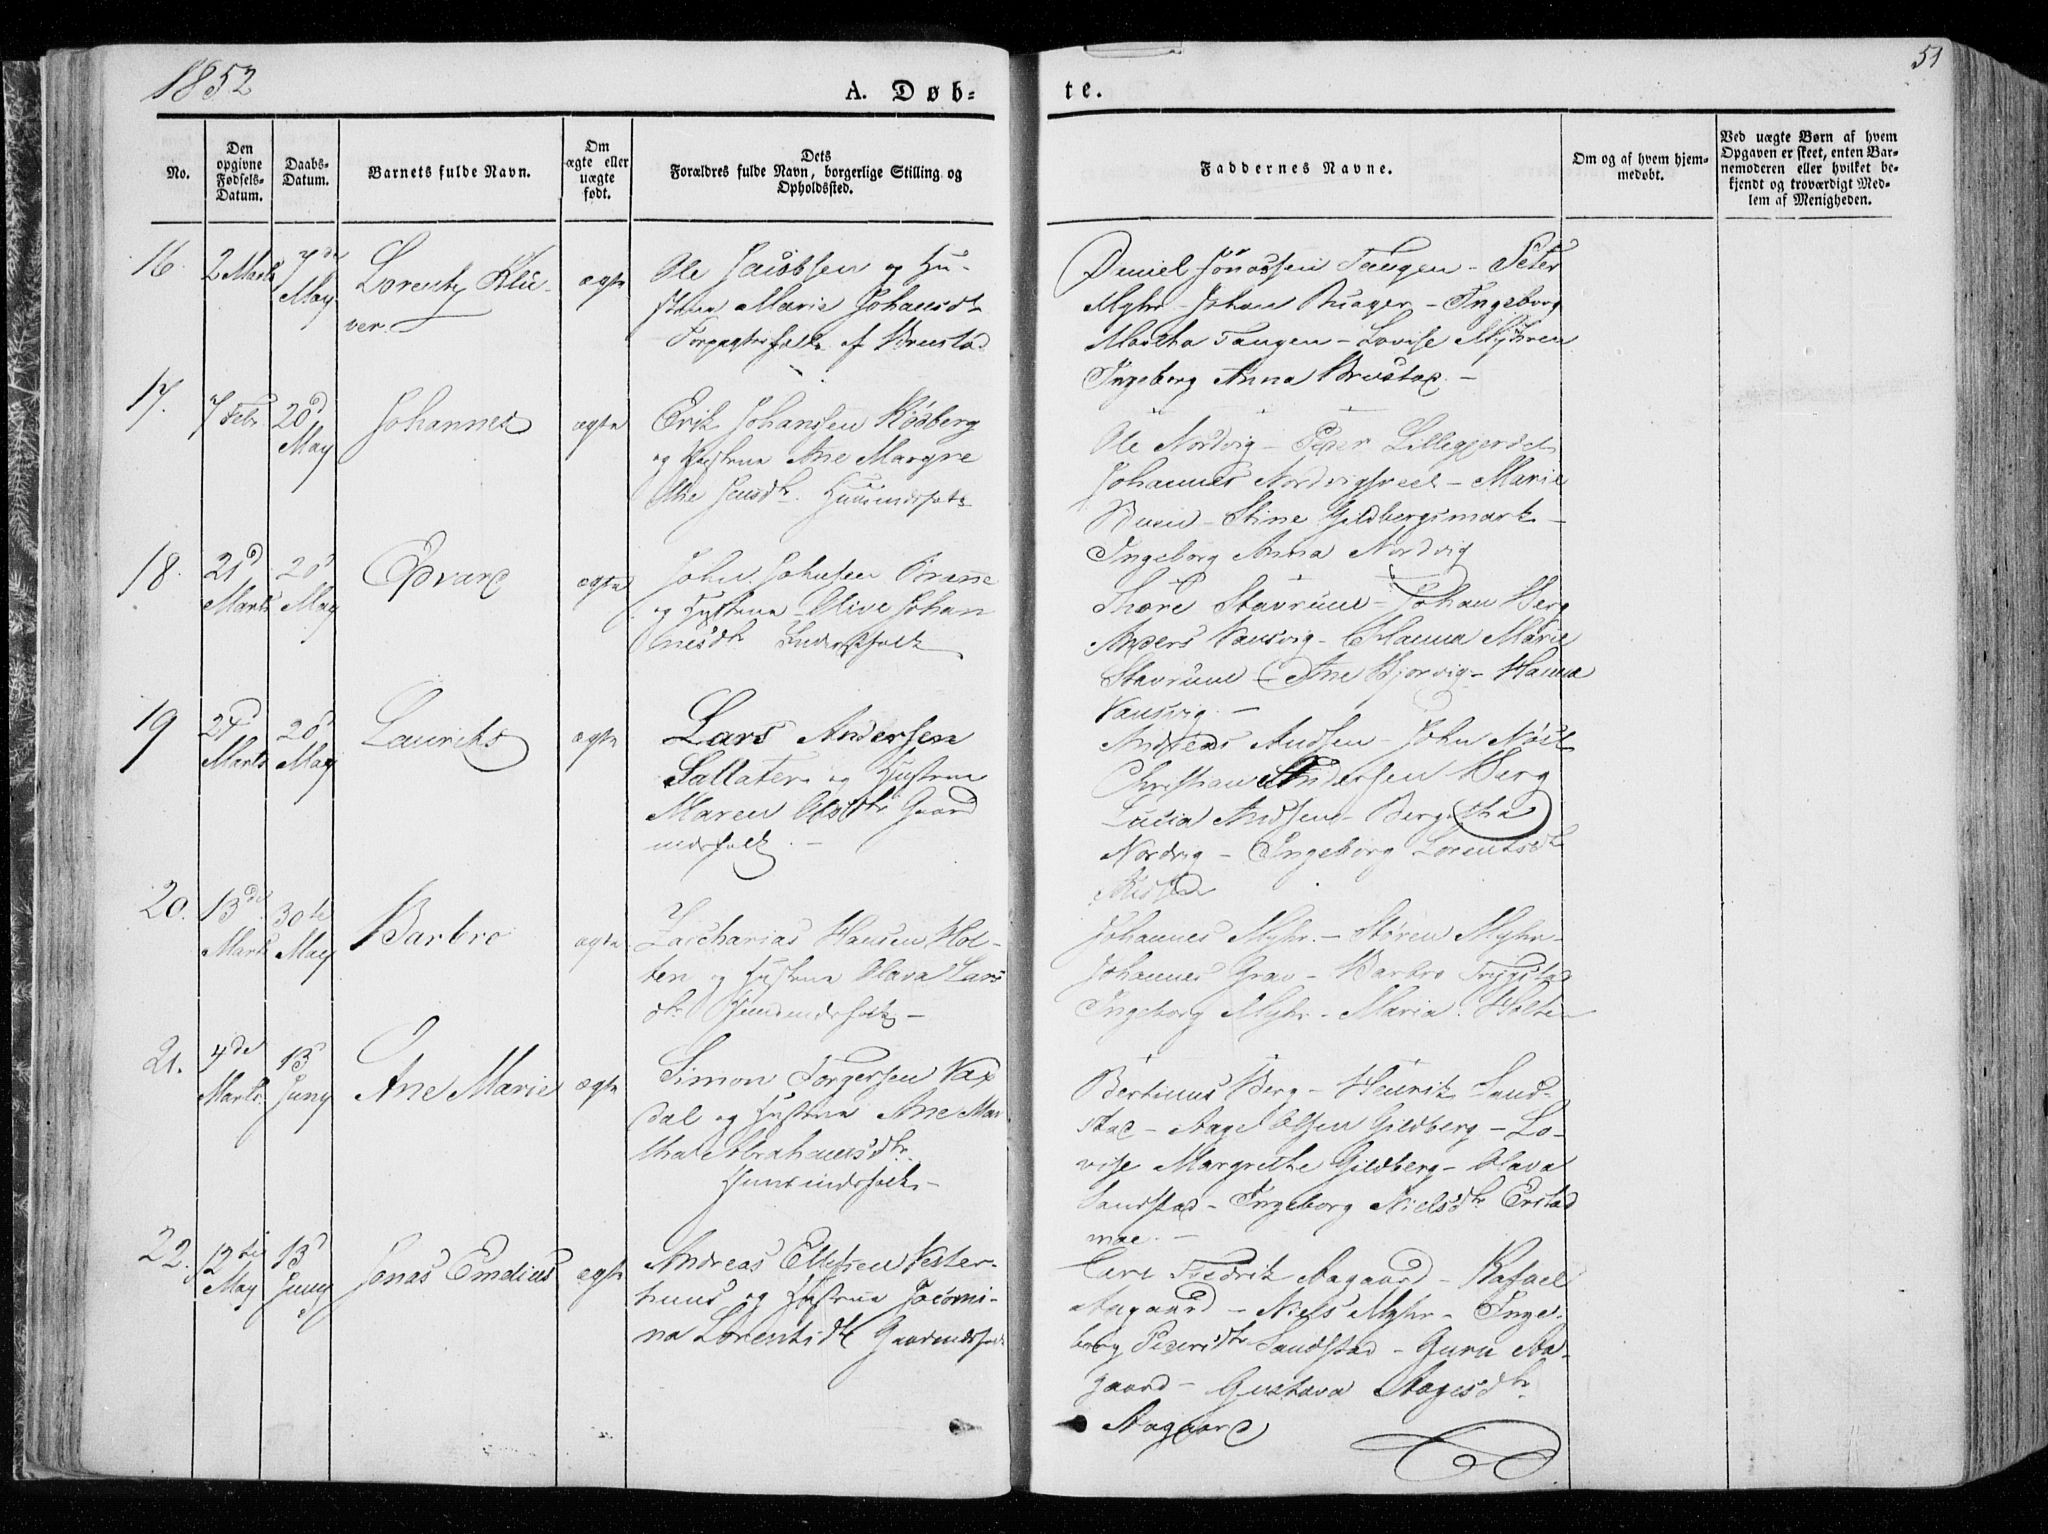 1852
A. Døb-
te.
51
No.
Den
opgivne
Fødsels-
Datum.
Daabs-
Datum.
Barnets fulde Navn.
Om
ægte eller
uægte
født.
Dets
Forældres fulde Navn, borgerlige Stilling og
Opholdssted.
Faddernes Navne.
Om og af hvem hjem-
medøbt.
Ved uægte Børn af hvem
Opgaven er skeet, enten Bar-
nemoderen eller hvilket be-
kjendt og troværdigt Med-
lem af Menigheden.
16.
2 Marts
7de
May
Lorents Klü-
ver.
ægte
Ole Jacobsen og Hu-
strue Marie Johansdtr
Forpagterfolk af
Daniel Jonassen Tangen - Peter
Myhr - Johan - Ingeborg
Martha Tangen - Lovise Myhren
Ingeborg Anna
17.
7 Febr.
20d
May
Johannes
ægte
Erik Johanssen Røsberg
og Hustrue Ane Margre
the Jensdtr. Huusmdsfolk
Ole Nordvig - Peter Lillegjerdet
Johannes - Marie
Stine Gildbergsmark -
Ingeborg Anna Nordvig
18.
21d
Marts
20d
May
Edvard
ægte
John Johnsen
og Hustrue Olive Johan
nesdtr Inderstfolk
Thore Stavrum - Johan Berg
Anders Vansvig - Hanna Marie
Stavrum - Ane Bjorvig - Hanna
Vansvig. -
19
24d
Marts
20d
May
Laurits
ægte
Lars Andersen
Sallater og Hustrue
Maren Olsdtr Gaard
mdsfolk. -
Andreas Andsen - John
Christian Andersen Berg
Lucia Andsen - Bergitha
Nordvig - Ingeborg Lorentsdtr
20.
13de
Marts
30te
May
Barbro
ægte
Zacharias Hansen Hol-
ten og Hustrue Olava Lars
dtr Huusmdsfolk -
Johannes Myhr. - Søren Myhr -
Johannes Grav - Barbro
Ingeborg Myhr - Maria Holten
21.
4de
Marts
13d
Juny
Ane Marie
ægte
Simon Torgersen Vax
dal og Hustrue Ane Mar
tha Abrahamsdtr.
Huusmdsfolk -
Bertinus Berg - Henrik Sand-
stad - Aage Olsen Gildberg - Lo-
vise Margrethe Gildberg - Olava
Sandstad - Ingeborg Nielsdtr
22.
12te
May
13d
Juny
Jonas Emelius
ægte
Andreas Ellefsen Vester-
huus og Hustrue Jacomi-
na Lorentsdtr Gaardmdsfolk
Carl Fredrik Aagaard - Rafael
Aagaard - Niels Myhr - Inge-
borg Pedersdtr Sandstad - Guru Aa-
gaard - Gustava Aagesdtr.
Aagaard